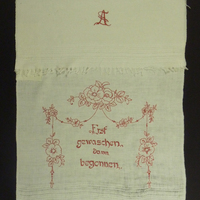 A
Erst
gewaschen
Dann
begonnen.